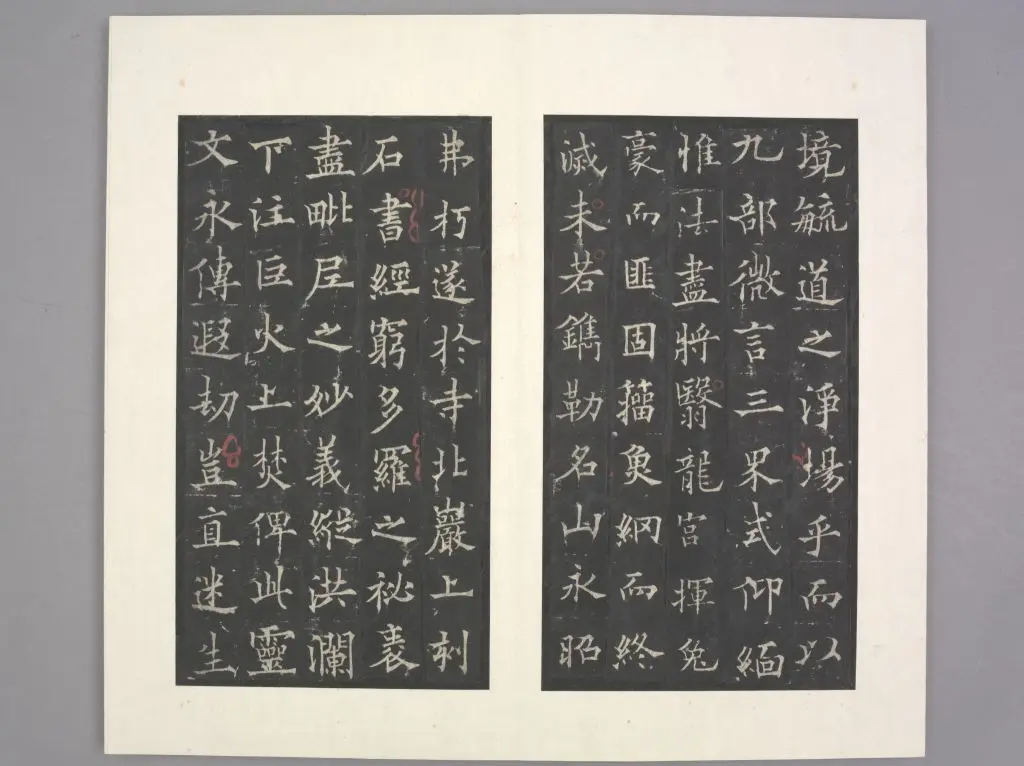 境毓道之淨場乎而以
九部微言三界式仰緬
惟法盡將翳龍宮揮兔
豪而匪固籀魚網而終
滅未若鐫勒名山永昭
弗朽遂於寺北巖上刻
石書經窮多羅之祕袠
盡毗尼之妙義縱洪瀾
下注巨火上焚俾此靈
文永傳遐劫豈直迷生